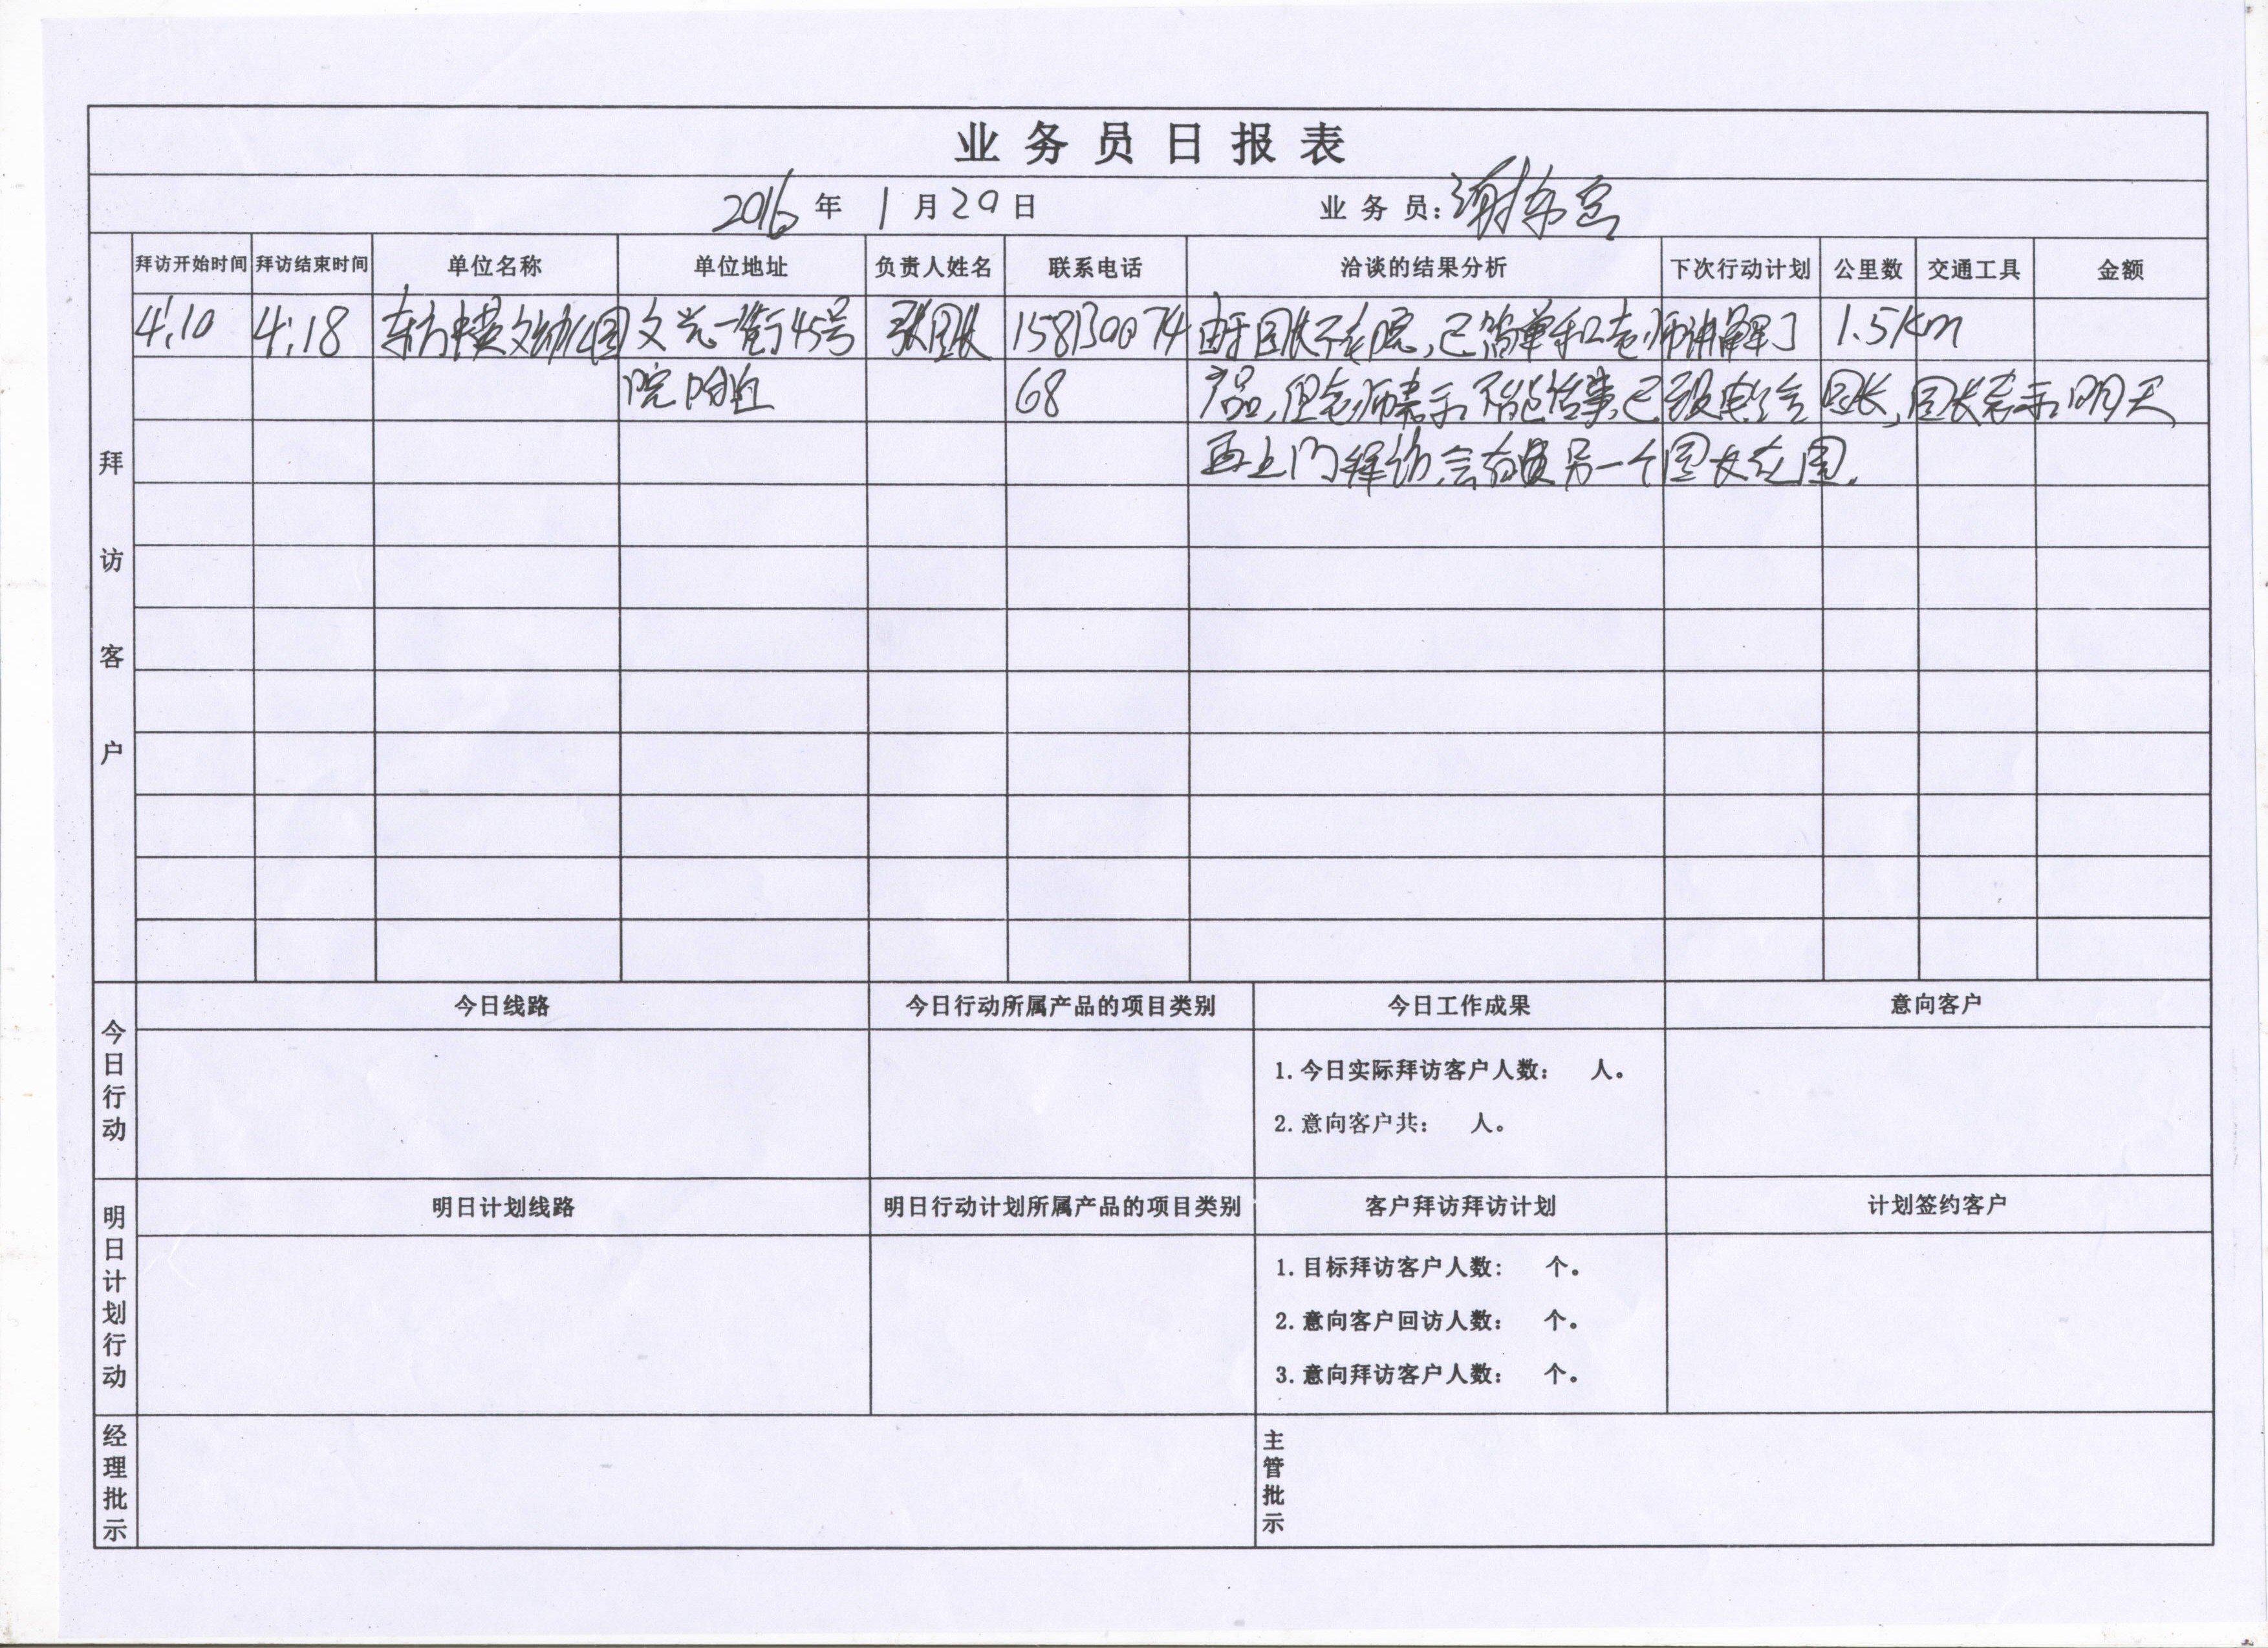 业务员日报表
2016年 1月29日 业务员:谢
拜访客户
拜访开始时间 拜访结束时间 单位名称 单位地址 负责人姓名 联系电话 洽谈的结果分析 下次行动计划 公里数 交通工具 金额
4:10 4:18 东方英文幼儿园 文光一街45号 张园长 由于园长不在院,已简单和老师讲解了 1.5km
院附近 68 产品,但老师表示不能话事,已致电给园长,园长表示明天
再上门拜访,会有另一个园长在园.
今日行动
今日线路 今日行动所属产品的项目类别 今日工作成果 意向客户
1.今日实际拜访客户人数: 人。
2.意向客户共: 人。
明日计划行动
明日计划线路 明日行动计划所属产品的项目类别 客户拜访拜访计划 计划签约客户
1.目标拜访客户人数: 个。
2.意向客户回访人数: 个。
3.意向拜访客户人数: 个。
经理批示 主管批示